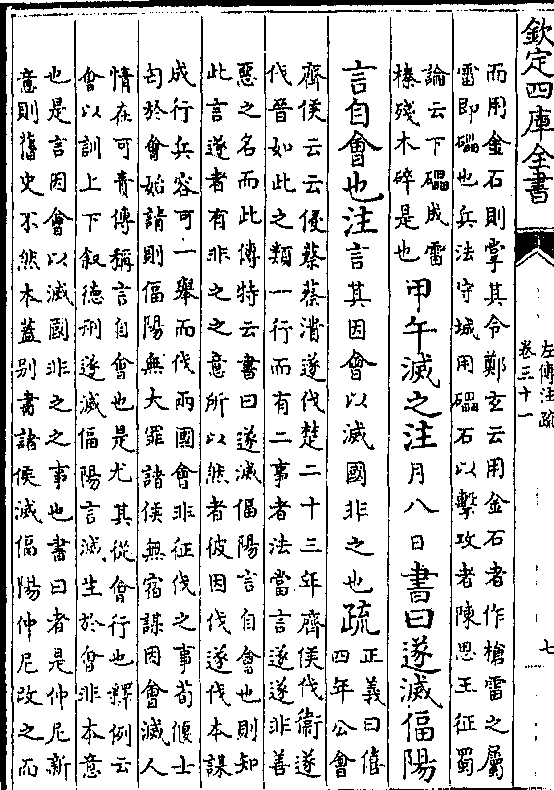 欽定四庫全書
左傳注疏
卷三十一
七
而用金石則掌其令鄭玄云用金石者作槍雷之屬
雷即礌也兵法守城用礌石以擊攻者陳思王征蜀
論云下礌成雷
榛殘木碎是也
甲午滅之注月八日書曰遂滅偪陽
言自會也注言其因會以滅國非之也疏
正義曰僖
四年公會
齊侯云云侵蔡蔡潰遂伐楚二十三年齊侯伐衛遂
伐晉如此之類一行而有二事者法當言遂遂非善
惡之名而此傳特云書曰遂滅偪陽言自會也則知
此言遂者有非之之意所以然者彼因伐遂伐本謀
成行兵容可一舉而伐兩國會非征伐之事荀偃士
匄於會始請則偪陽無大罪諸侯無宿謀因會滅人
情在可責傳稱言自會也是尤其從會行也釋例云
會以訓上下叙德刑遂滅偪陽言滅生於會非本意
也是言因會以滅國非之之事也書曰者是仲尼新
意則舊史不然本蓋别書諸侯滅偪陽仲尼改之而